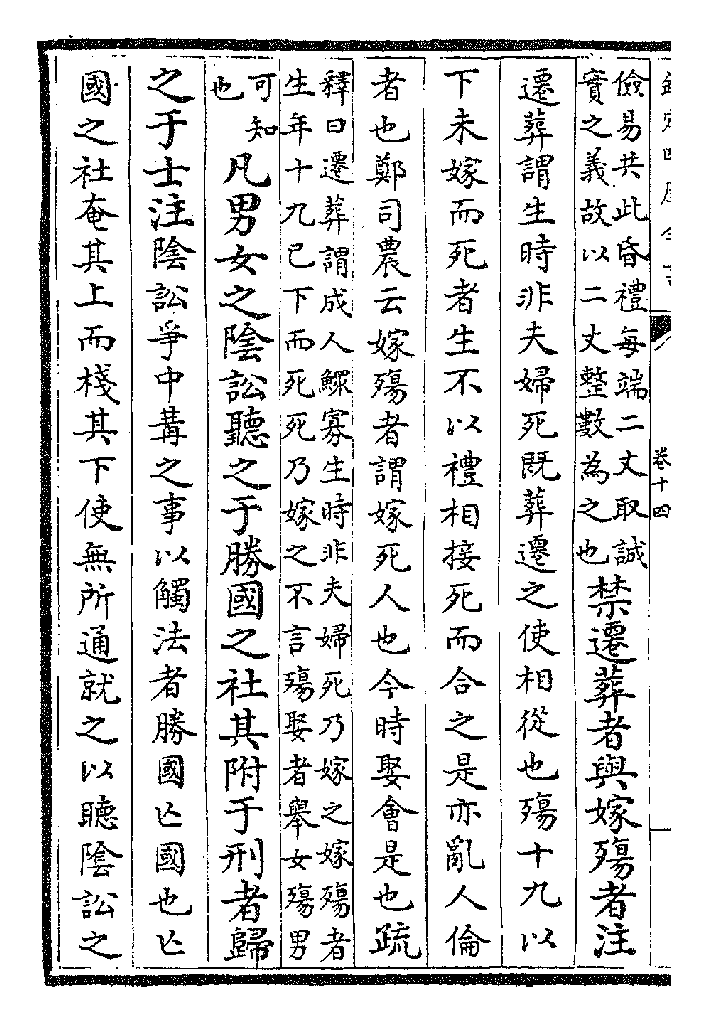 卷十四
儉易共此昏禮每端二丈取誠
實之義故以二丈整數為之也
禁遷葬者與嫁殤者注
遷葬謂生時非夫婦死既葬遷之使相從也殤十九以
下未嫁而死者生不以禮相接死而合之是亦亂人倫
者也鄭司農云嫁殤者謂嫁死人也今時娶會是也疏
釋曰遷葬謂成人鰥寡生時非夫婦死乃嫁之嫁殤者
生年十九已下而死死乃嫁之不言殤娶者舉女殤男
可知
也
凡男女之陰訟聽之于勝國之社其附于刑者歸
之于士注陰訟爭中冓之事以觸法者勝國亡國也亡
國之社奄其上而棧其下使無所通就之以聽陰訟之